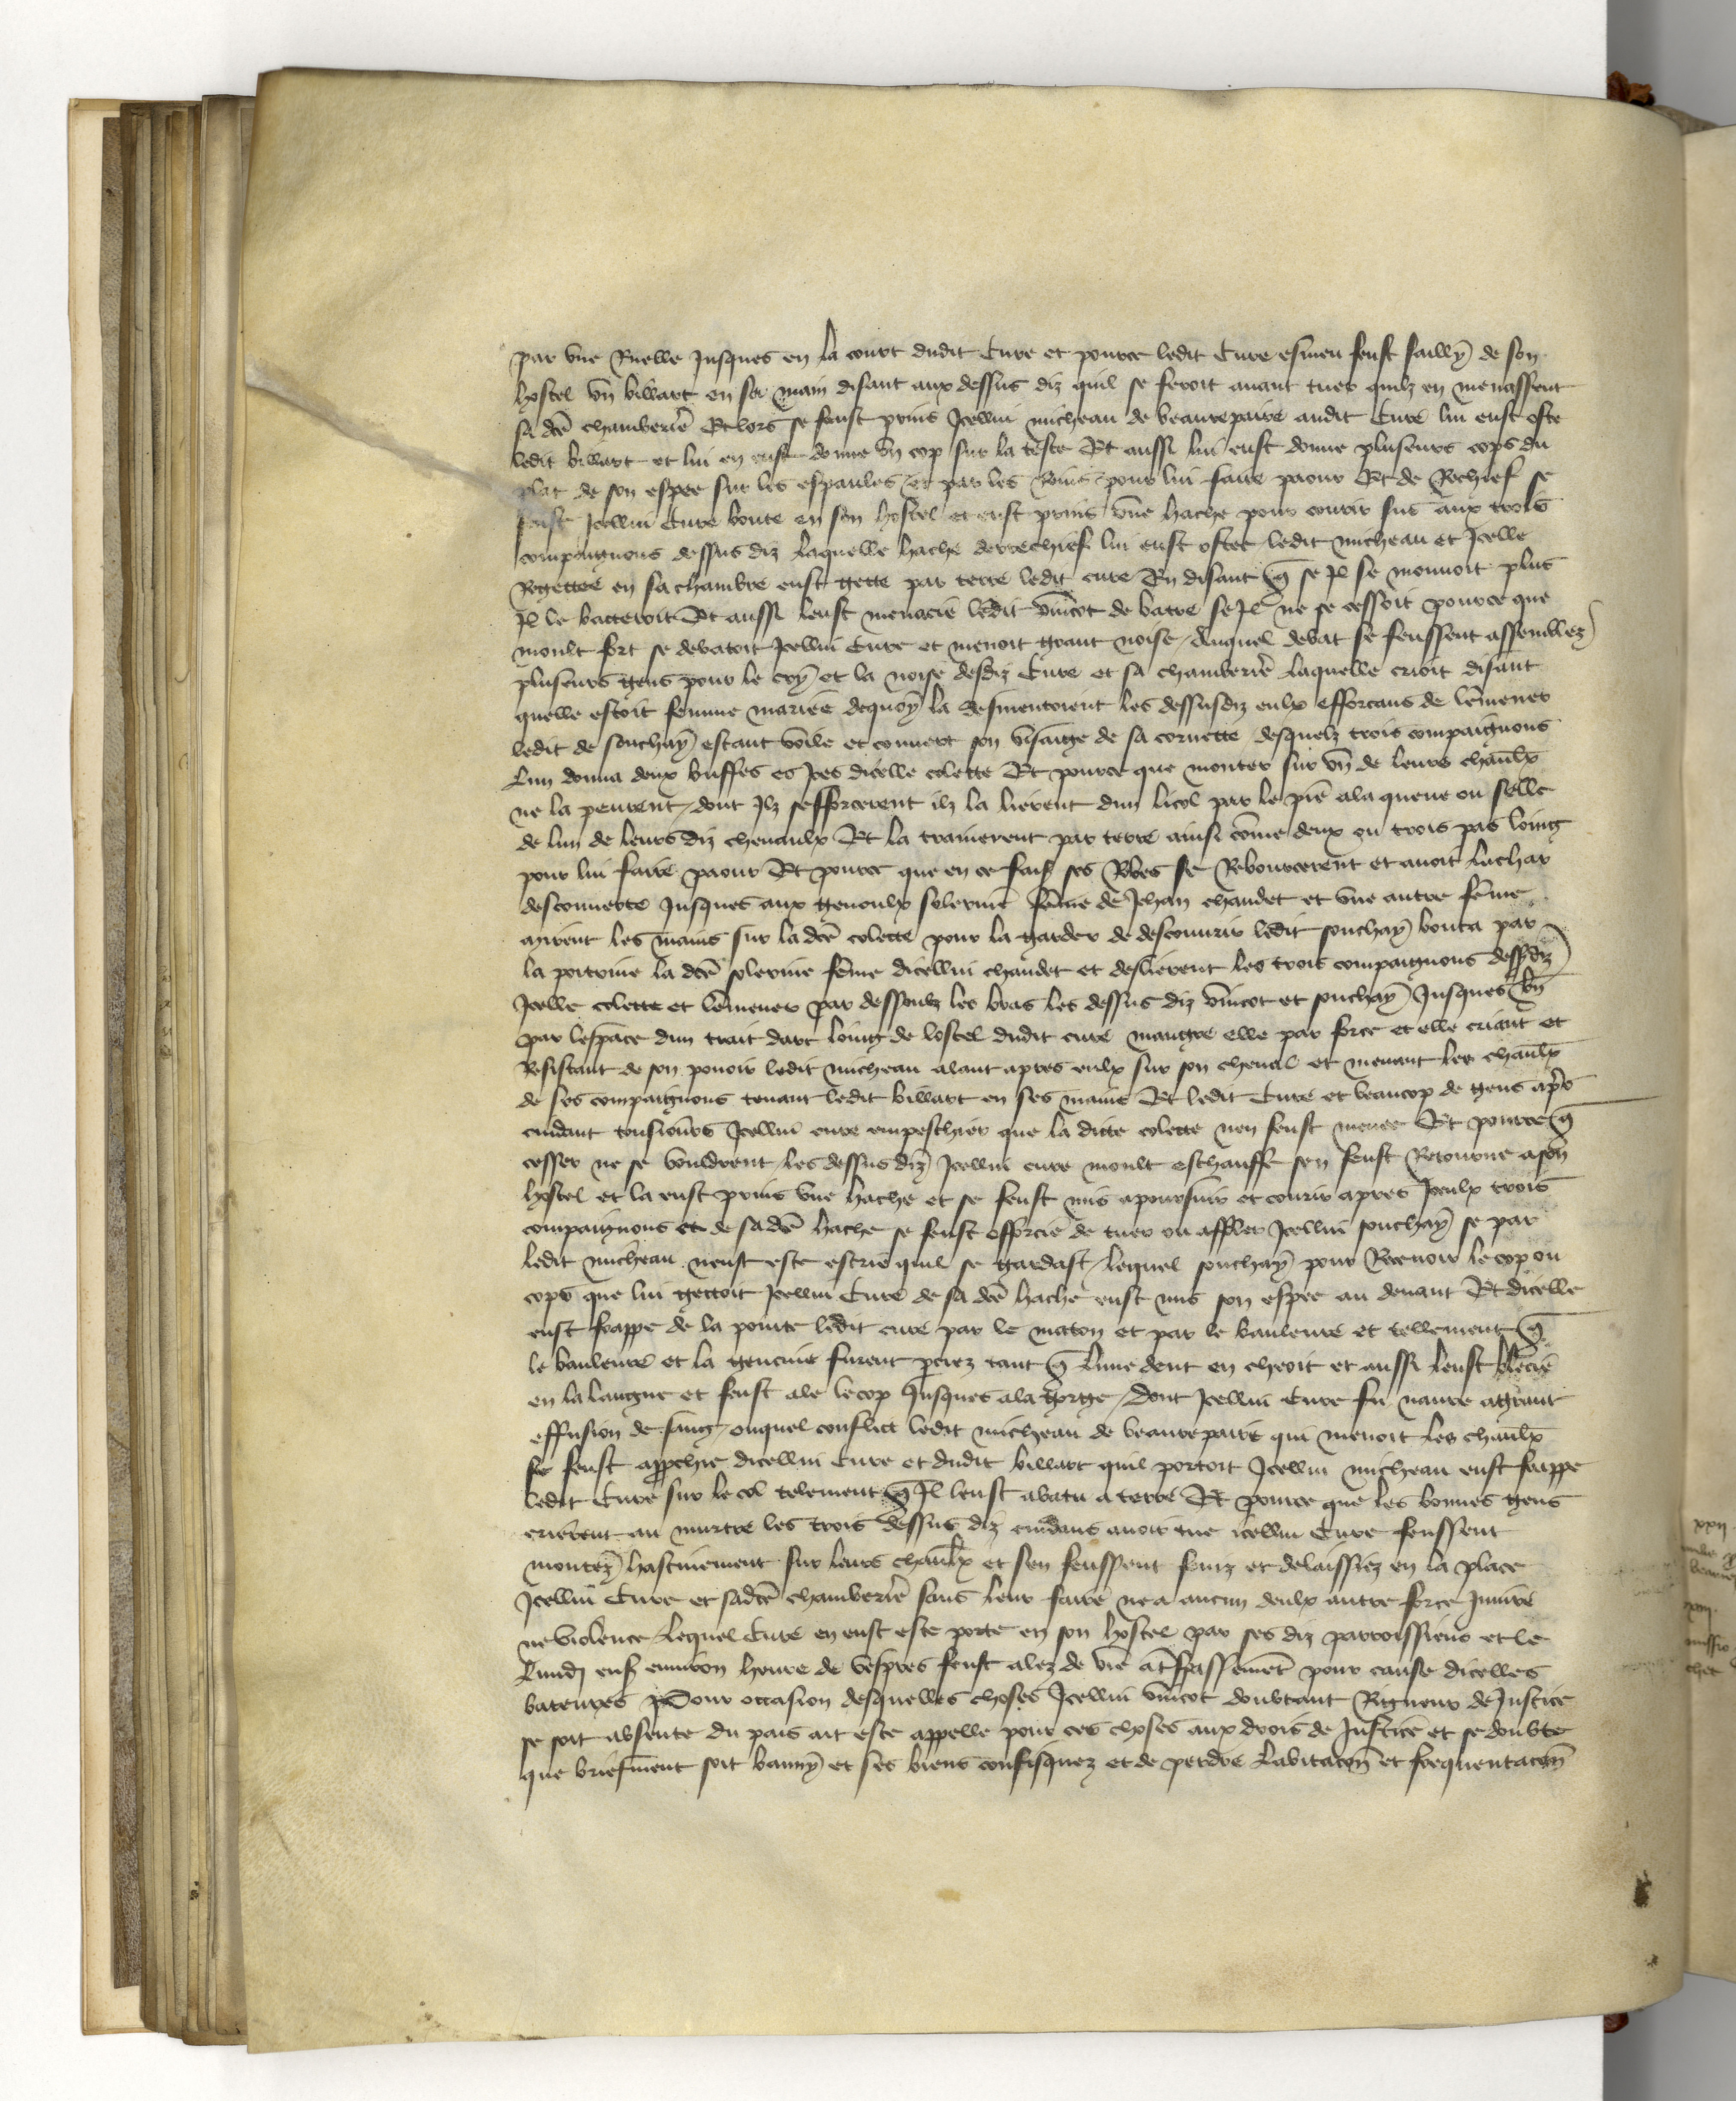 par une Ruelle Jusques en la court dudit Cure et pource ledit Cure esmeu feust sailly de son
hostel un billart en sa main disant aux dessus diz quil se feroit avant tuer quilz en menassent
sa dce chamberiere Et lors se feust prins Jcellui micheau de beaurepaire audit Cure lui eust oste
ledit billart et lui en eust donne un cop sur la teste Et aussi lui eust donne pluseurs cops du
plat de son espee sur les espaules et par les Rains pour lui faire paour Et de Rechief se
feust Jcellui Cure boute en son hostel et eust prins une hache pour courir sus aux trois
compaignons dessus diz laquelle hache derrechief lui eust ostee ledit micheau et Jcelle
Regettee en sa chambre eust gette par terre ledit cure En disant q se Jl se mouvoit plus
Jl le batteroit Et aussi leust menacie ledit vincot de batre se Jl ne se cessoit pource que
moult fort se debatoit Jcellui Cure et menoit grant noise / Auquel debat se feussent assemblez
pluseurs gens pour le cry et la noise desdiz Cure et sa chamberiere laquelle crioit disant
quelle estoit femme mariee dequoy la desmentoient les dessusdiz eulx efforcans de lemmener
ledit de souchay estant voile et couvert son visaige de sa cornette / desquelz trois compaignons
lun donna deux buffes es Joes dicelle colette Et pource que monter sur un de leurs chaulx
ne la peurent / dont Jlz sefforcerent ilz la lierent dun licol par le pie a la queue ou selle
de lun de leurs diz chevaulx Et la trainerent par terre ainsi come deux ou trois pas loing
pour lui faire paour Et pource que en ce fais ses Robes se Rebourcerent et avoit la char
descouverte Jusques aux genoulx solerine feme de Jehan chaudet et une autre feme
mirent les mains sur la dce colette pour la garder de descouvrir ledit souchay bouta par
la poitrine la dce solerine feme dicellui chaudet et deslierent les trois compaignons dessdiz
Jcelle colette et lemmener par dessoubz les bras les dessus diz vincot et souchay Jusques bn
par lespace dun trait darc loing de lostel dudit cure maugre elle par force et elle criant et
Resistant de son povoir ledit micheau alant apres eulx sur son cheval et menant les chaulx
de ses compaignons tenant ledit billart en ses mains Et ledit Cure et beaucop de gens apres
cuidant tousiours Jcellui cure empeschier que la dicte colette nen feust menee Et pource q
cesser ne se vouldrent / les dessus diz Jcellui cure moult eschauffe sen feust Retourne a son
hostel et la eust prins une hache et se feust mis a poursuir et courir apres Jceulx trois
compaignons et de sa dce hache se feust efforcie de tuer ou affoler Jcellui souchay se par
ledit micheau neust este escrie quil se gardast / lequel souchay pour Recevoir le cop ou
cops que lui gettoit Jcellui Cure de sa dce hache eust mis son espee au devant Et dicelle
eust frappe de la pointe ledit cure par le maton et par le baulevre et tellement q
le baulevre et la gencive furent perciez tant q lune dent en cheoit et aussi leust blecie
en la langue et feust ale le cop Jusques a la gorge / dont Jcellui Cure fu navre a grant
effusion de sang / ouquel conflict ledit micheau de beaurepaire qui menoit les chaulx
se feust approchie dicellui Cure et dudit billart quil portoit Jcellui micheau eust frappe
ledit Cure sur le col telement q Jl leust abatu a terre Et pource que les bonnes gens
crierent au murtre les trois dessus diz cuidans avoir tue icellui Cure feussent
montez hastivement sur leurs chaulx et sen feussent fuiz et delaissiez en la place
Jcellui Cure et sadce chamberiere sans leur faire ne a aucun deulx autre force Jniure
ne violence lequel Cure en eust este porte en son hostel par ses diz parroissiens et le
Lundj ens environ heure de vespres feust alez de vie a trespassement pour cause dicelles
bateures Pour occasion desquelles choses Jcellui vincot doubtant Rigueur de Justice
se soit absente du pais ait este appelle pour ces choses aux drois de Justice et se doubte
que briefment soit banny et ses biens confisquez et de perdre labitacon et frequentacon